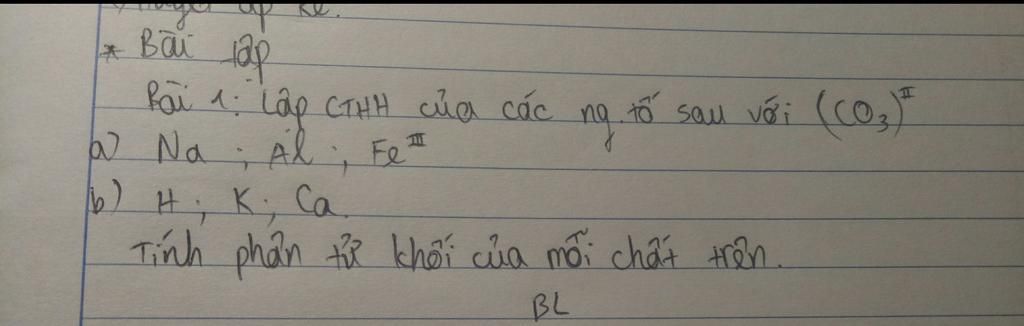 * Bài tập
Bài 1: Lập CTHH của các ng tố sau với (CO₃)ᴵᴵ
a) Na ; Al ; Feᴵᴵᴵ
b) H ; K ; Ca.
Tính phân tử khối của mỗi chất trên.
BL